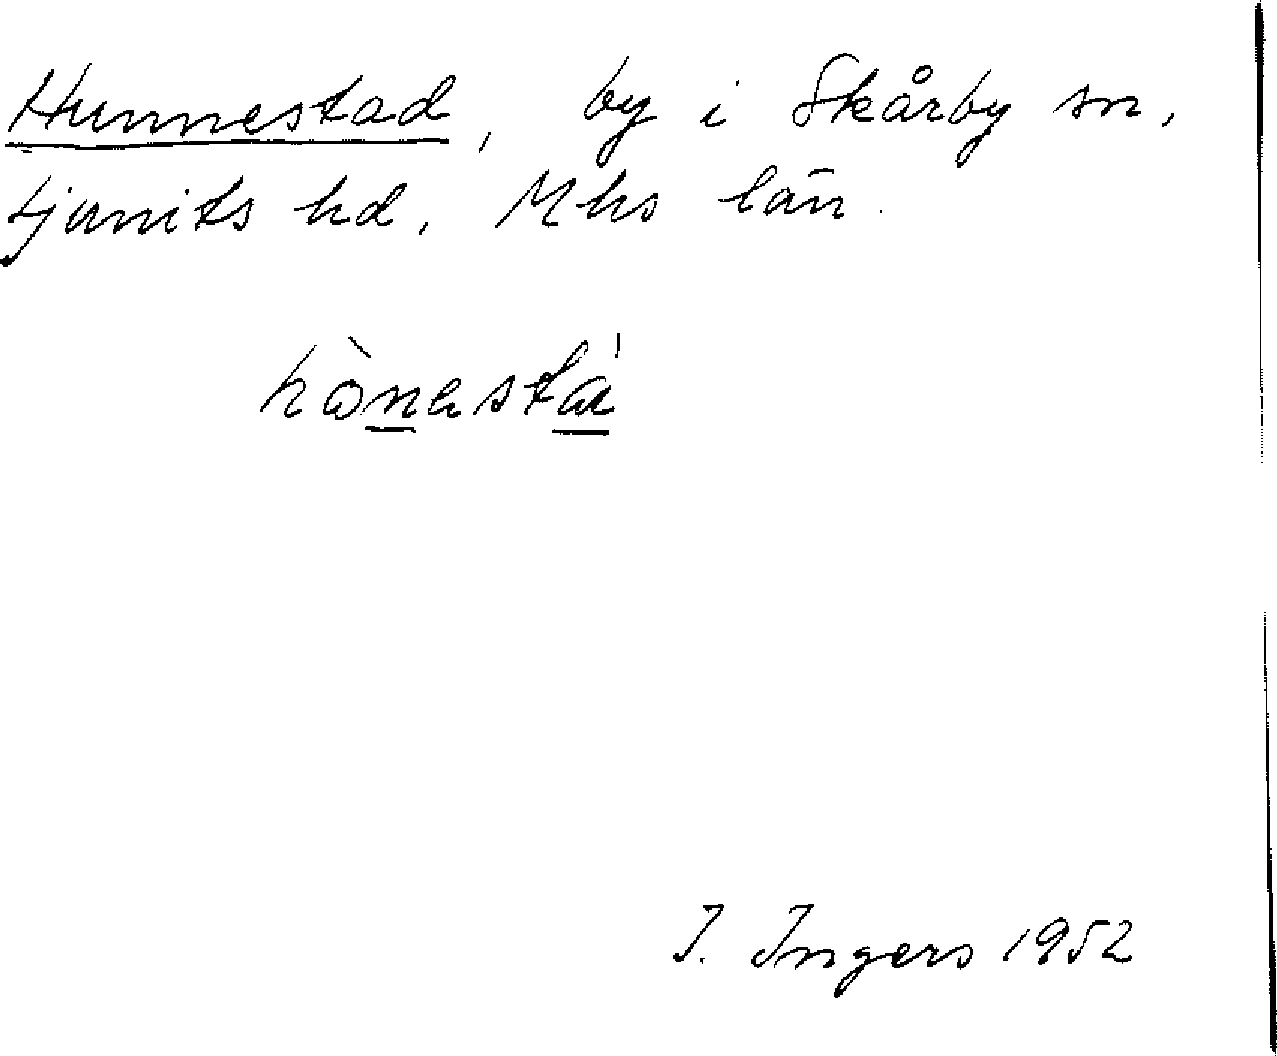 Hunnestad, by i Skårby sn,
Ljunits hd, Mhs län.
hònestá
I. Ingers 1952